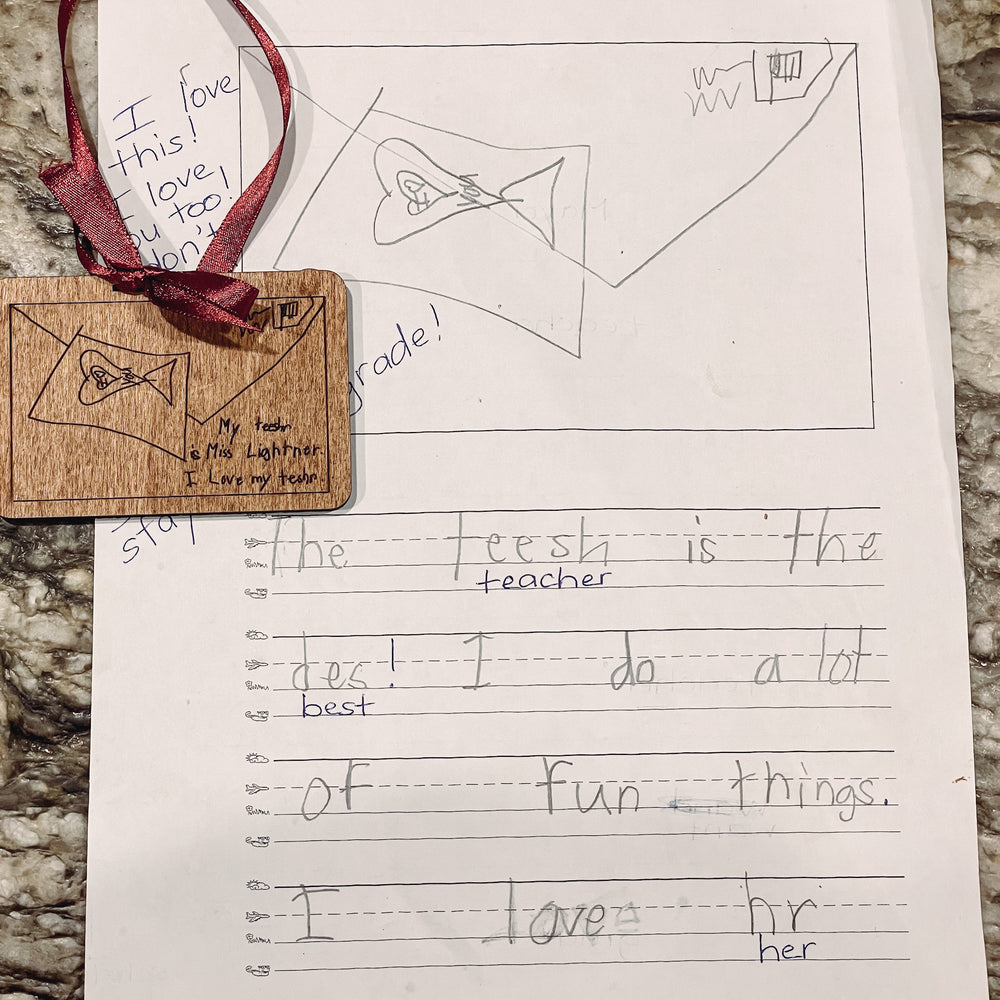 I love
this!
I love
ou too!
don't
grade!
stay
My teeshr
is Miss Lightner.
I Love my teshr
The teesh is the
teacher
des! I do a lot
best
of fun things.
I love hr
her